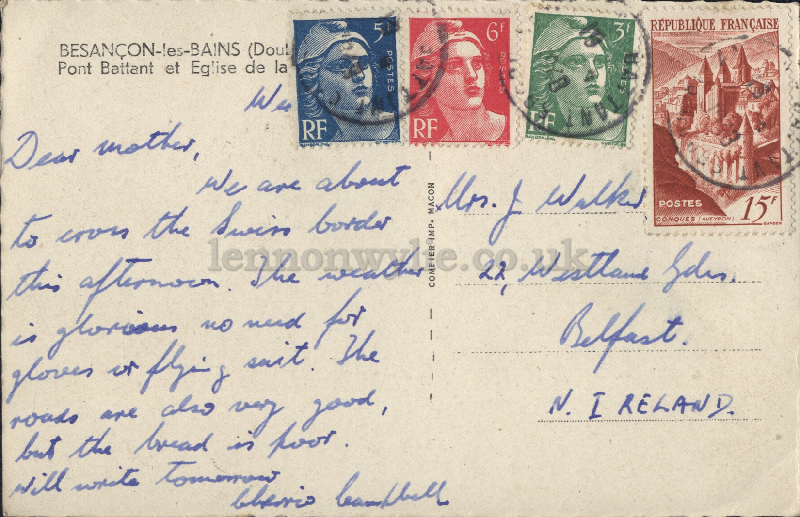 BESANÇON-les-BAINS (Doub
Pont Battant et Eglise de la
5F
POSTES
RF
6F
POSTES
RF
3F
POSTES
RF
RÉPUBLIQUE FRANÇAISE
POSTES
CONQUES (AVEYRON)
15F
BATTANT
We
Dear mother,
We are about
to cross the Swiss border
this afternoon. The weather
is glorious no need for
gloves or flying suit. The
roads are also very good,
but the bread is poor.
Will write tomorrow
Cheerio Campbell
COMBIER IMP. MACON
Mrs. J Walker
22, Westland Gdns.
Belfast.
N. IRELAND.
lennonwylie.co.uk